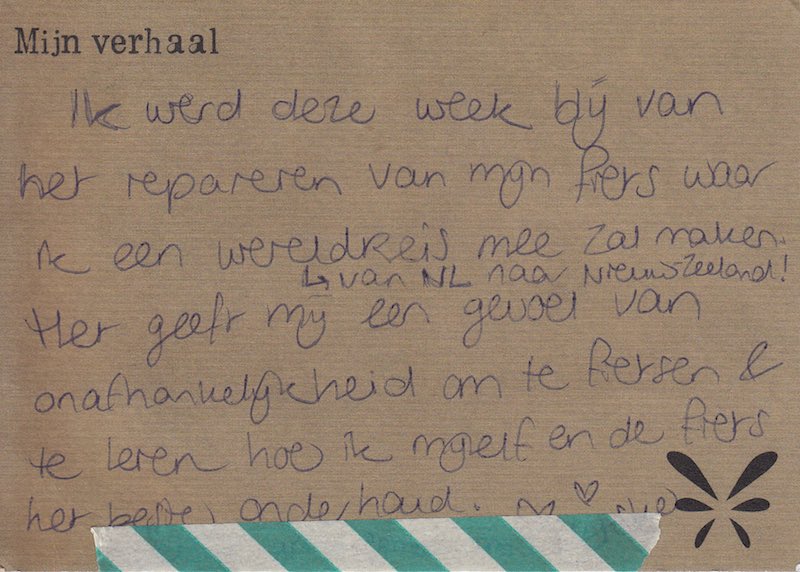 Mijn verhaal
Ik werd deze week blij van
het repareren van mijn fiets waar
ik een wereldreis mee zal maken.
↳ van NL naar Nieuwzeeland!
Het geeft mij een gevoel van
onafhankelijkheid om te fietsen &
te leren hoe ik mijzelf en de fiets
het beste onderhoud.